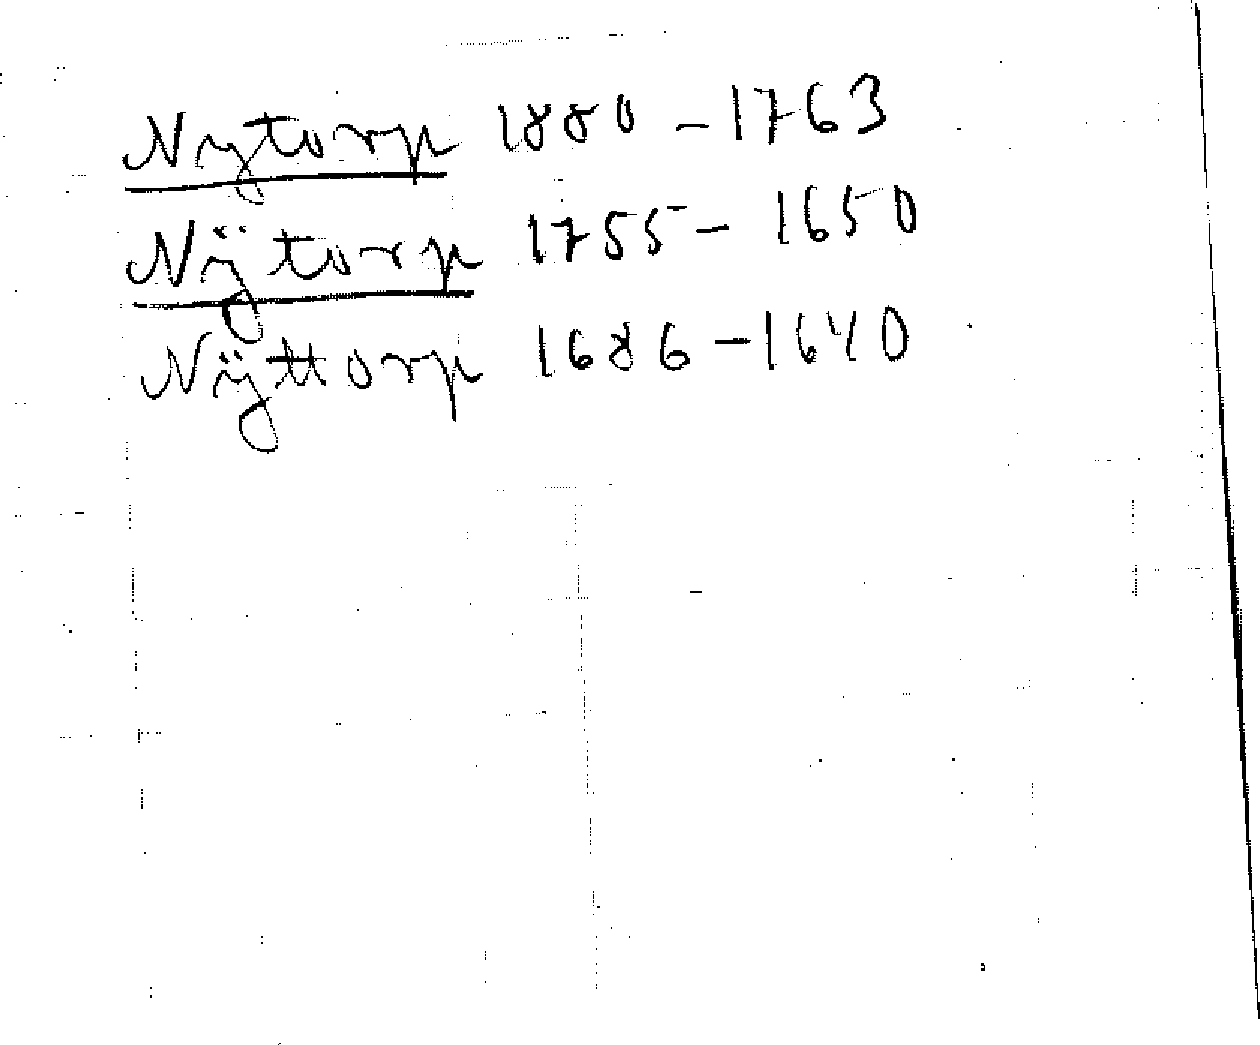 Nytorp 1880 - 1763
Nÿtorp 1755 - 1650
Nÿttorp 1686 - 1640